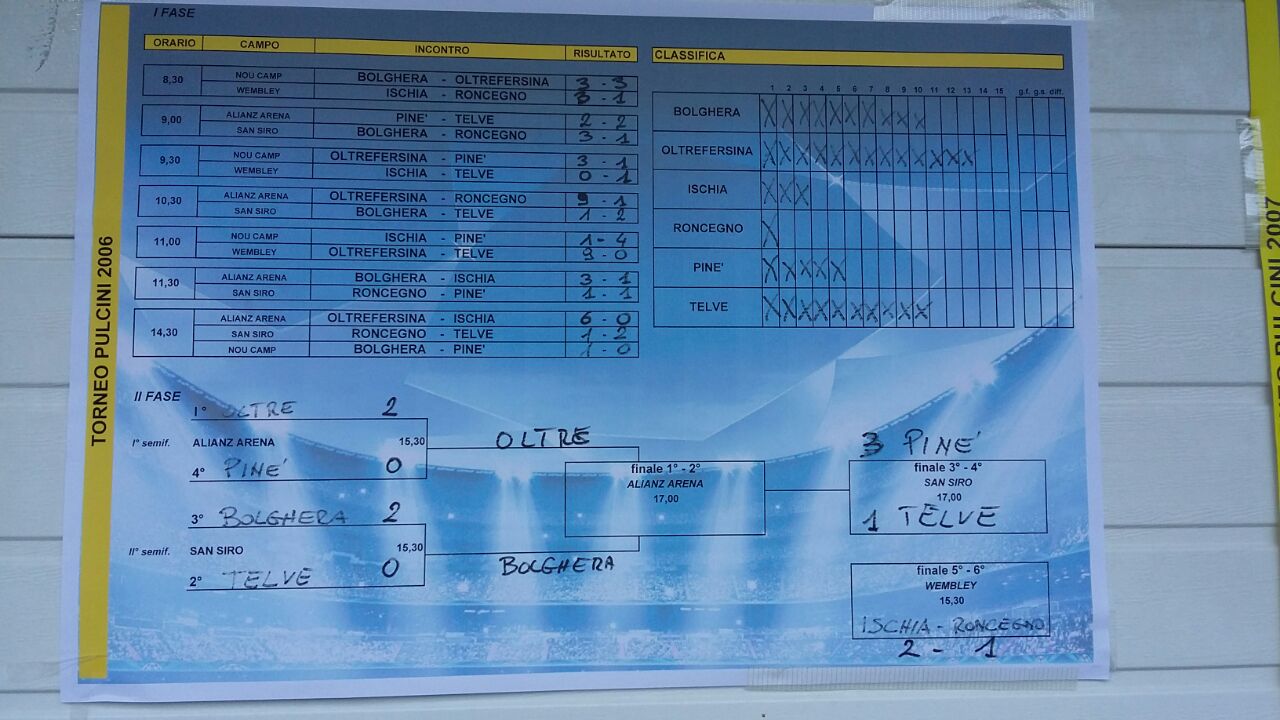 I FASE
ORARIO CAMPO INCONTRO RISULTATO
8,30 NOU CAMP BOLGHERA - OLTREFERSINA 3 - 3
WEMBLEY ISCHIA - RONCEGNO 3 - 1
9,00 ALIANZ ARENA PINE' - TELVE 2 - 2
SAN SIRO BOLGHERA - RONCEGNO 3 - 1
9,30 NOU CAMP OLTREFERSINA - PINE' 3 - 1
WEMBLEY ISCHIA - TELVE 0 - 1
10,30 ALIANZ ARENA OLTREFERSINA - RONCEGNO 9 - 1
SAN SIRO BOLGHERA - TELVE 1 - 2
11,00 NOU CAMP ISCHIA - PINE' 1 - 4
WEMBLEY OLTREFERSINA - TELVE - 0
11,30 ALIANZ ARENA BOLGHERA - ISCHIA 3 - 1
SAN SIRO RONCEGNO - PINE' 1 - 1
14,30 ALIANZ ARENA OLTREFERSINA - ISCHIA 6 - 0
SAN SIRO RONCEGNO - TELVE 1 - 2
NOU CAMP BOLGHERA - PINE' 1 - 0
CLASSIFICA
1 2 3 4 5 6 7 8 9 10 11 12 13 14 15 g.f. g.s. diff.
BOLGHERA X X X X X X X X X X
OLTREFERSINA X X X X X X X X X X X X X
ISCHIA X X X
RONCEGNO X
PINE' X X X X X
TELVE X X X X X X X X X X
TORNEO PULCINI 2006
II FASE
1° OLTRE 2
I° semif. ALIANZ ARENA 15,30
4° PINE' 0
3° BOLGHERA 2
II° semif. SAN SIRO 15,30
2° TELVE 0
OLTRE
finale 1° - 2°
ALIANZ ARENA
17,00
BOLGHERA
3 PINE'
finale 3° - 4°
SAN SIRO
17,00
1 TELVE
finale 5° - 6°
WEMBLEY
15,30
ISCHIA - RONCEGNO
2 - 1
PULCINI 2007